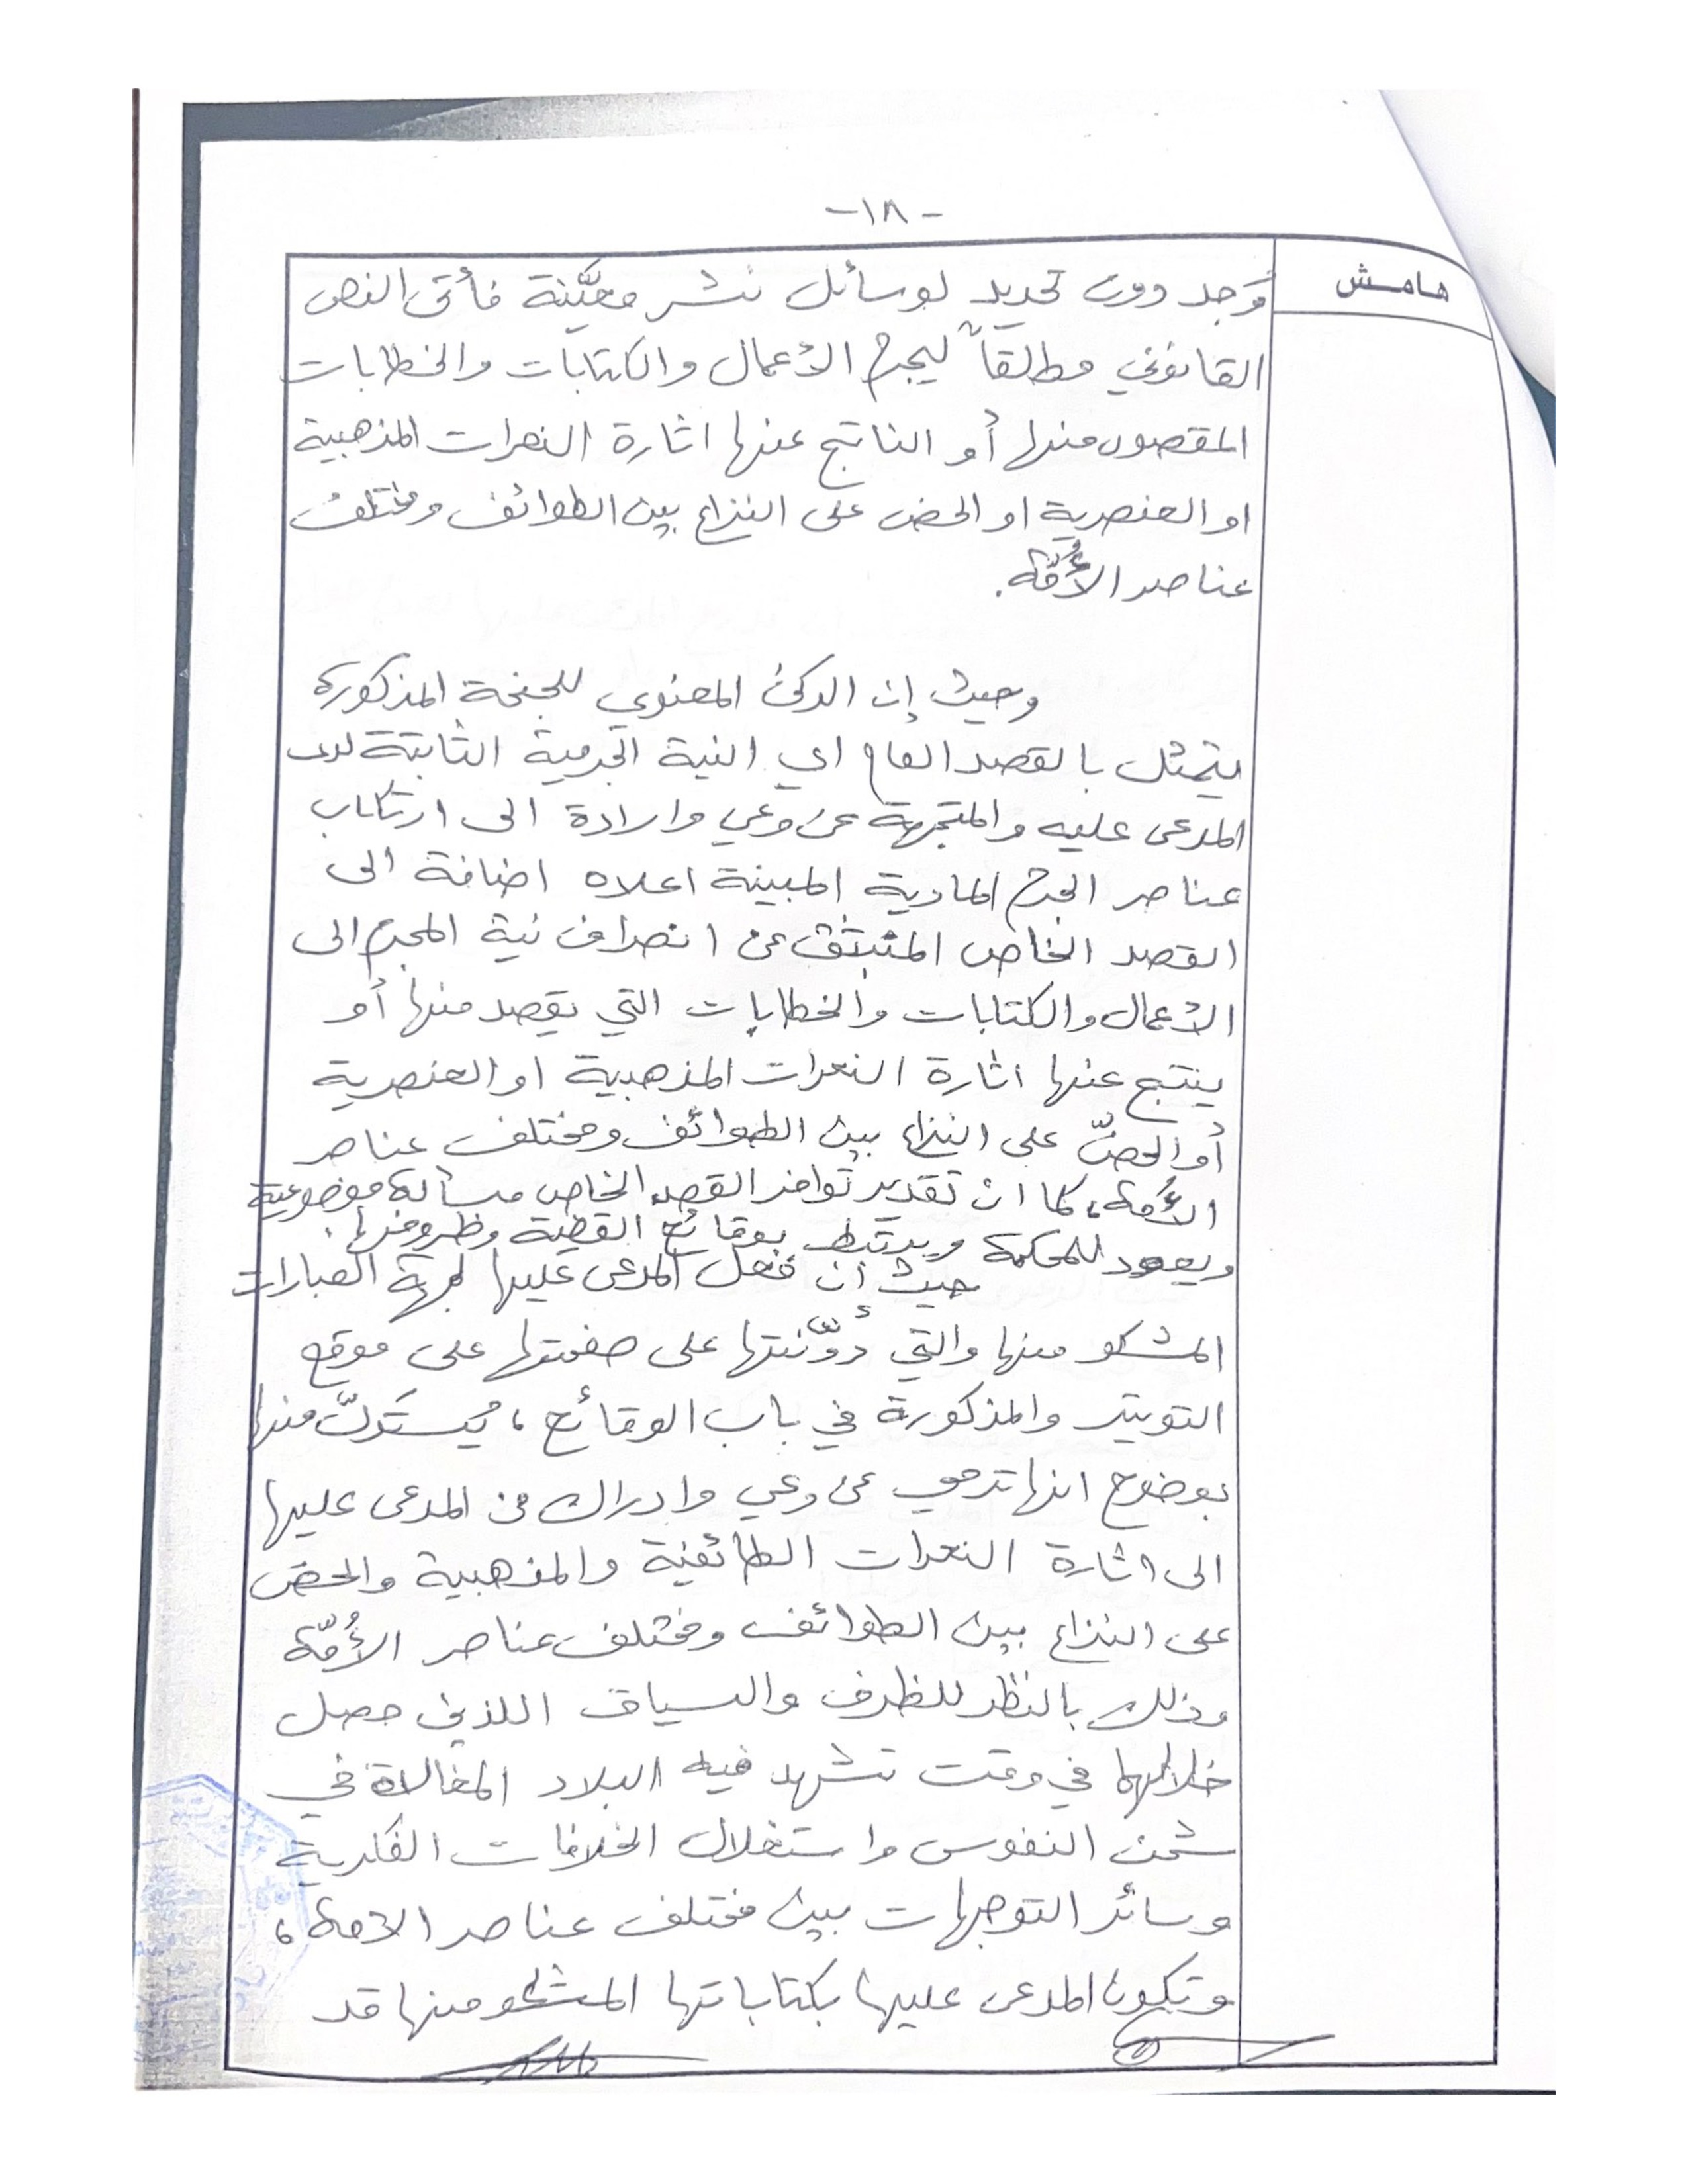 -١٨-
هامش
وُجد دون تحديد لوسائل نشر معيّنة فأتى النص
القانوني مطلقاً ليجرم الأعمال والكتابات والخطابات
المقصود منها أو الناتج عنها اثارة النعرات المذهبية
او العنصرية او الحض على النزاع بين الطوائف ومختلف
عناصر الأُمّة.
وحيث إن الركن المعنوي للجنحة المذكورة
يتمثل بالقصد العام اي النية الجرمية الثابتة لدى
المدعى عليه والمتجهة عن وعي وارادة الى ارتكاب
عناصر الجرم المادية المبينة اعلاه اضافة الى
القصد الخاص المنبثق عن انصراف نية المجرم الى
الأعمال والكتابات والخطابات التي يقصد منها أو
ينتج عنها اثارة النعرات المذهبية او العنصرية
أو الحضّ على النزاع بين الطوائف ومختلف عناصر
الأُمة، كما ان تقدير توافر القصد الخاص مسألة موضوعية
ويعود للمحكمة ويرتبط بوقائع القضية وظروفها.
حيث أن فعل المدعى عليها لجهة العبارات
المشكو منها والتي دوّنتها على صفحتها على موقع
التويتر والمذكورة في باب الوقائع، يُستَدلّ منها
بوضوح انها ترمي عن وعي وادراك من المدعى عليها
الى اثارة النعرات الطائفية والمذهبية والحض
على النزاع بين الطوائف ومختلف عناصر الأُمّة
وذلك بالنظر للظرف والسياق اللذين حصل
خلالهما في وقت تشهد فيه البلاد المغالاة في
شحن النفوس واستغلال الخلافات الفكرية
وسائر التوجهات بين مختلف عناصر الأمة،
وتكون المدعى عليها بكتاباتها المشكو منها قد